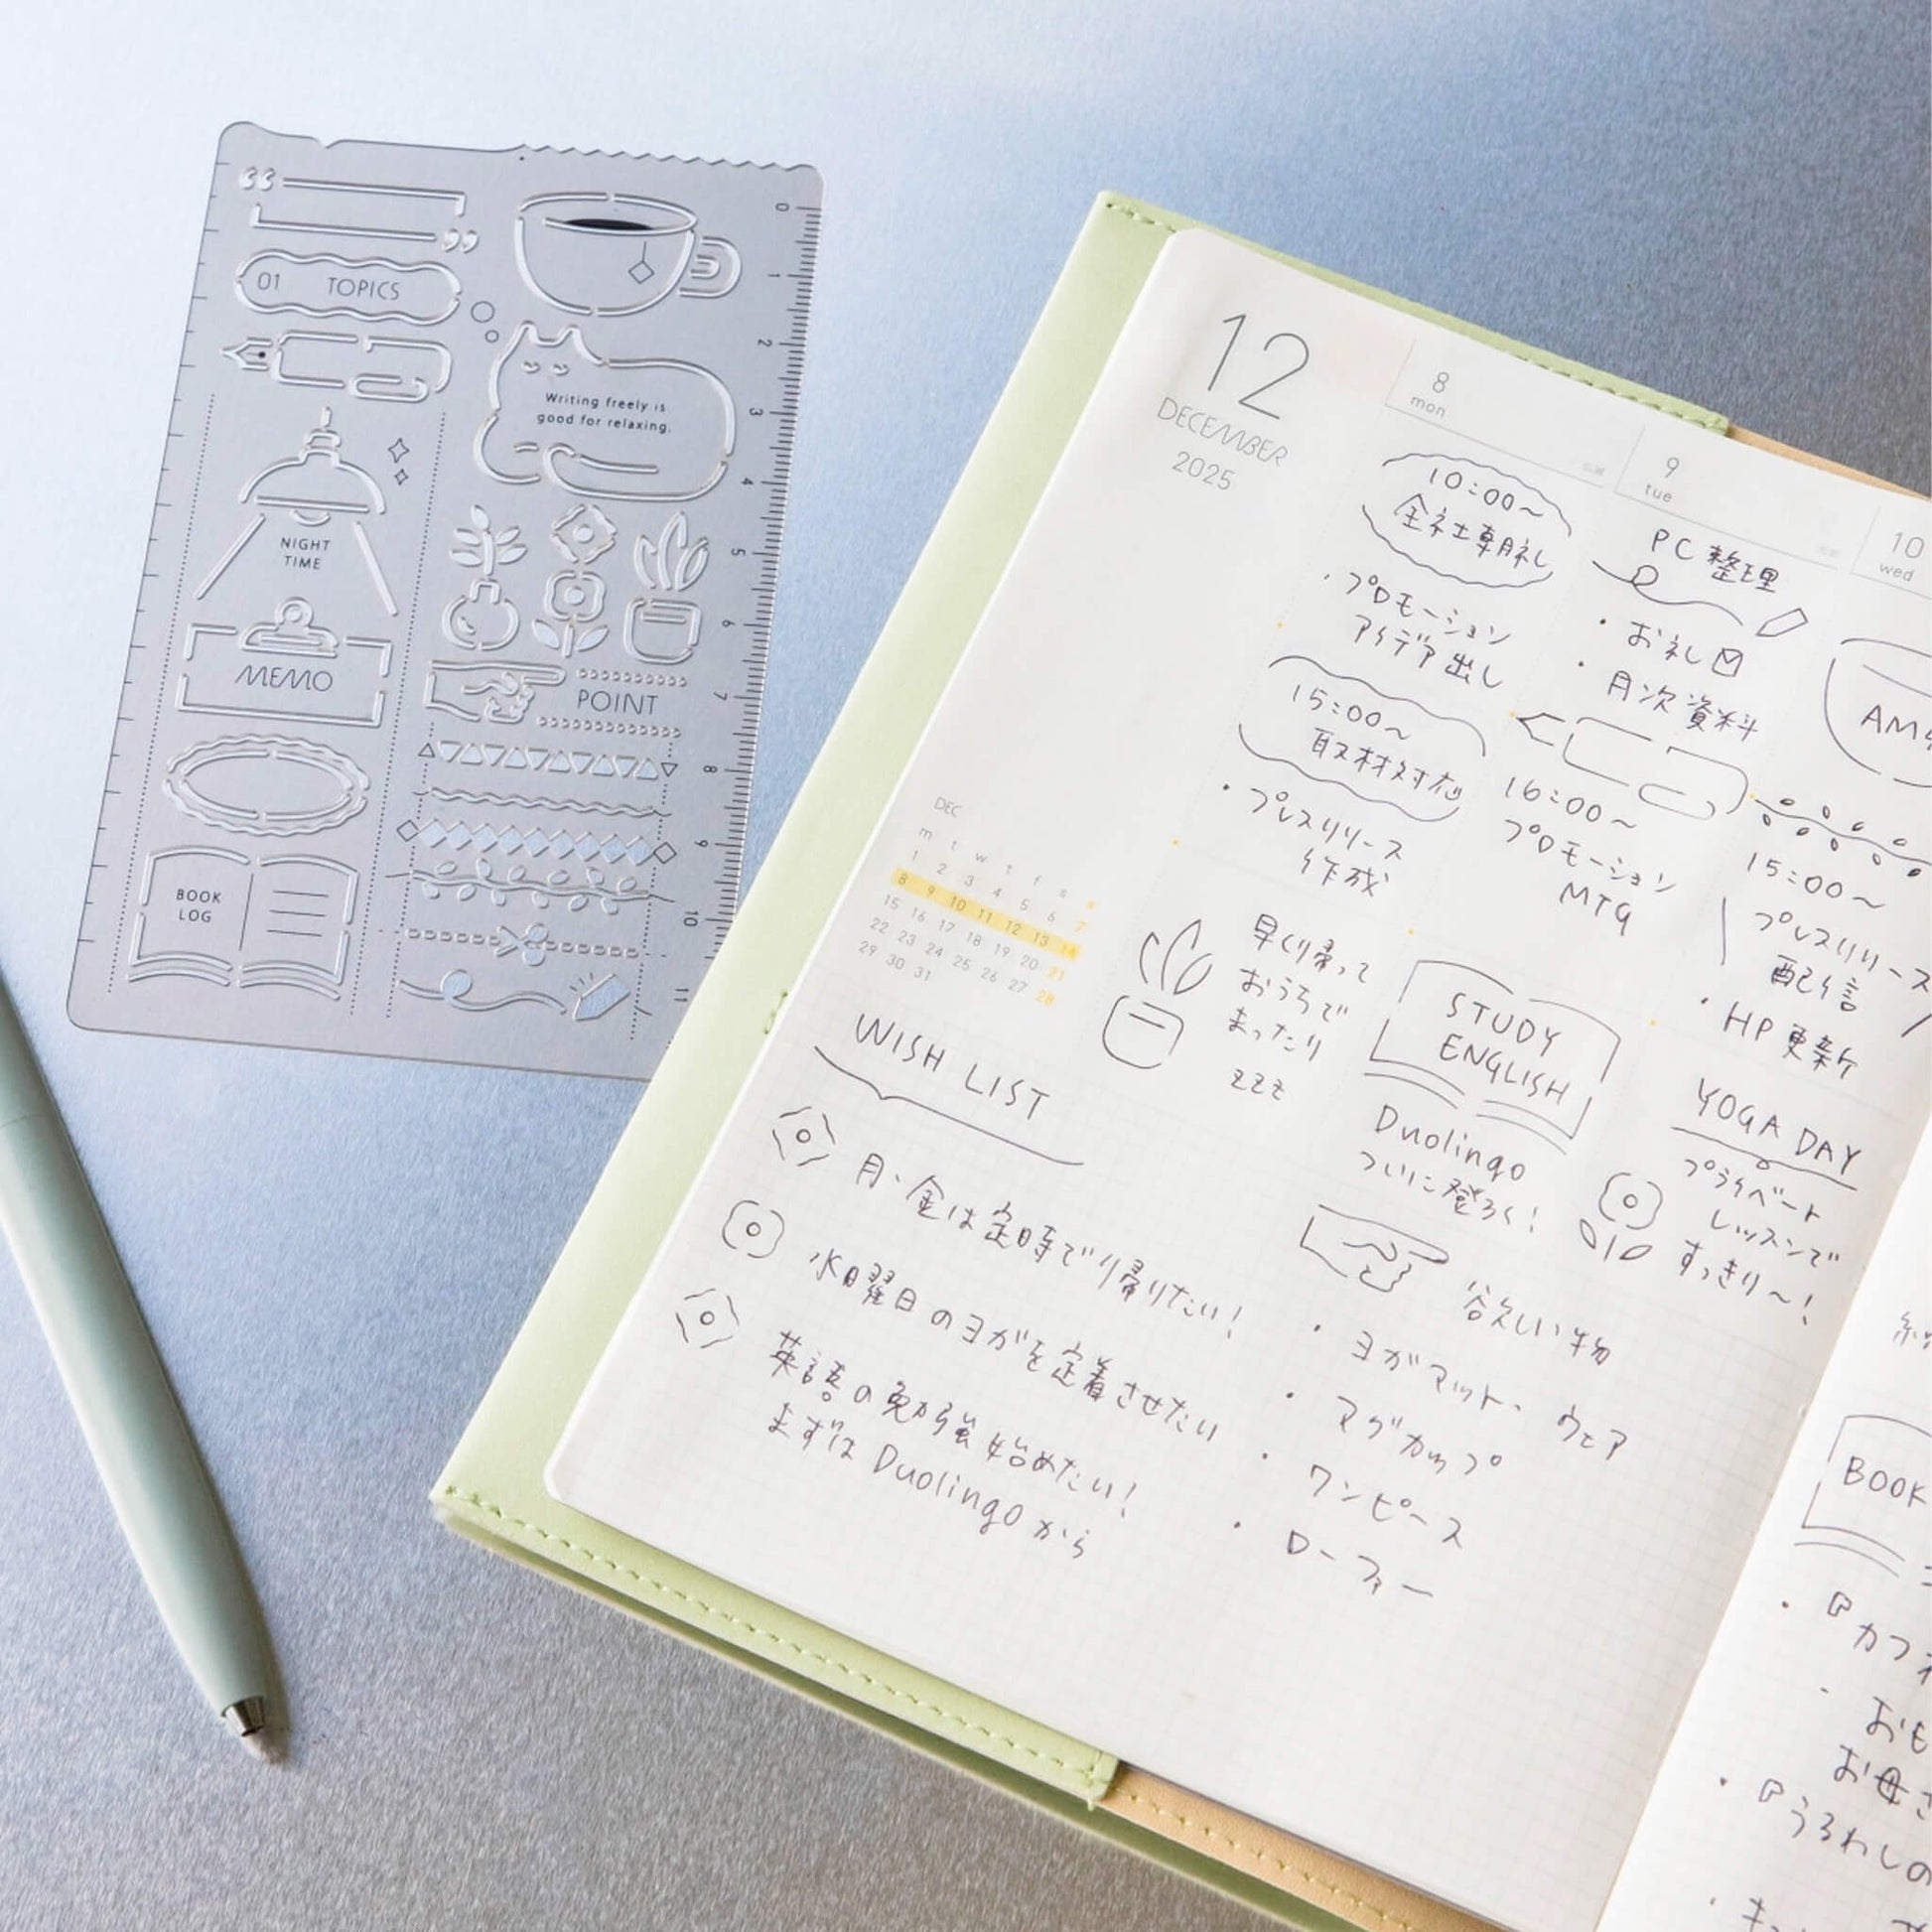 01 TOPICS
Writing freely is
good for relaxing.
NIGHT
TIME
MEMO
POINT
BOOK
LOG
0
1
2
3
4
5
6
7
8
9
10
11
12
DECEMBER
2025
8
mon
10:00〜
全社朝礼
・プロモーション
アイデア出し
15:00〜
取材対応
・プレスリリース
作成
早く帰って
おうちで
まったり
zzz
9
tue
PC整理
・お礼
・月次資料
16:00〜
プロモーション
MTG
STUDY
ENGLISH
Duolingo
ついに登ろく!
10
wed
15:00〜
プレスリリース
配信
・HP更新
YOGA DAY
プライベート
レッスンで
すっきり〜!
DEC
m t w t f s s
1 2 3 4 5 6 7
8 9 10 11 12 13 14
15 16 17 18 19 20 21
22 23 24 25 26 27 28
29 30 31
WISH LIST
月・金は定時で帰りたい!
水曜日のヨガを定着させたい
英語の勉強始めたい!
まずはDuolingoから
欲しい物
・ヨガマット、ウェア
・マグカップ
・ワンピース
・ローファー
BOOK